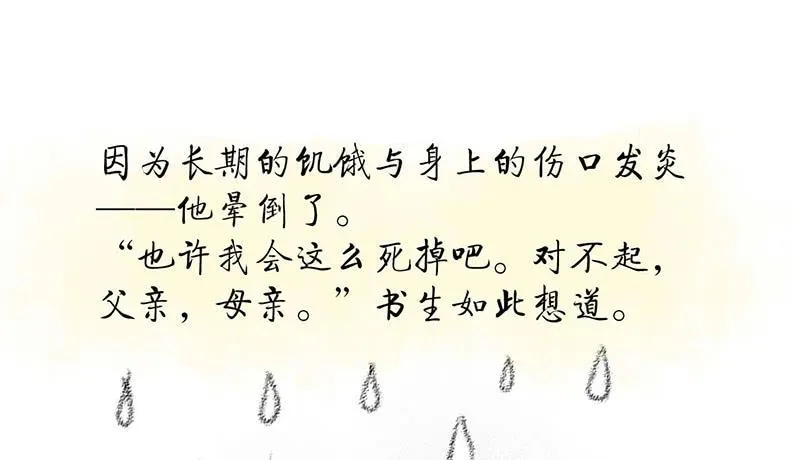 因为长期的饥饿与身上的伤口发炎
——他晕倒了。
“也许我会这么死掉吧。对不起，
父亲，母亲。”书生如此想道。